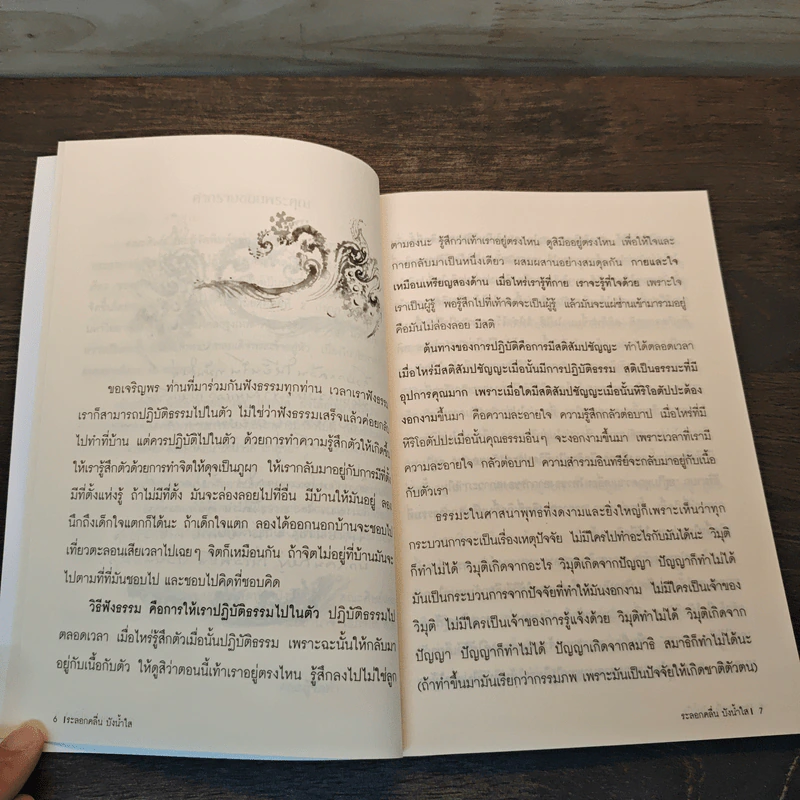 ขอเจริญพร ท่านที่มาร่วมกันฟังธรรมทุกท่าน เวลาเราฟังธรรม
เราก็สามารถปฏิบัติธรรมไปในตัว ไม่ใช่ว่าฟังธรรมเสร็จแล้วค่อยกลับ
ไปทำที่บ้าน แต่ควรปฏิบัติไปในตัว ด้วยการทำความรู้สึกตัวให้เกิดขึ้น
ให้เรารู้สึกตัวด้วยการทำจิตให้ดุจเป็นภูผา ให้เรากลับมาอยู่กับการมีที่ตั้ง
มีที่ตั้งแห่งรู้ ถ้าไม่มีที่ตั้ง มันจะล่องลอยไปที่อื่น มีบ้านให้มันอยู่ ลอง
นึกถึงเด็กใจแตกก็ได้นะ ถ้าเด็กใจแตก ลองได้ออกนอกบ้านจะชอบไป
เที่ยวตะลอนเสียเวลาไปเฉยๆ จิตก็เหมือนกัน ถ้าจิตไม่อยู่ที่บ้านมันจะ
ไปตามที่ที่มันชอบไป และชอบไปคิดที่ชอบคิด
วิธีฟังธรรม คือการให้เราปฏิบัติธรรมไปในตัว ปฏิบัติธรรมไป
ตลอดเวลา เมื่อไหร่รู้สึกตัวเมื่อนั้นปฏิบัติธรรม เพราะฉะนั้นให้กลับมา
อยู่กับเนื้อกับตัว ให้ดูสิว่าตอนนี้เท้าเราอยู่ตรงไหน รู้สึกลงไปไม่ใช่ลูก
6 | ระลอกคลื่น บังน้ำใส
ตามองนะ รู้สึกว่าเท้าเราอยู่ตรงไหน ดูสิมืออยู่ตรงไหน เพื่อให้ใจและ
กายกลับมาเป็นหนึ่งเดียว ผสมผสานอย่างสมดุลกัน กายและใจ
เหมือนเหรียญสองด้าน เมื่อไหร่เรารู้ที่กาย เราจะรู้ที่ใจด้วย เพราะใจ
เราเป็นผู้รู้ พอรู้สึกไปที่เท้าจิตจะเป็นผู้รู้ แล้วมันจะแผ่ซ่านเข้ามารวมอยู่
คือมันไม่ล่องลอย มีสติ
ต้นทางของการปฏิบัติคือการมีสติสัมปชัญญะ ทำได้ตลอดเวลา
เมื่อไหร่มีสติสัมปชัญญะเมื่อนั้นมีการปฏิบัติธรรม สติเป็นธรรมะที่มี
อุปการะคุณมาก เพราะเมื่อใดมีสติสัมปชัญญะเมื่อนั้นหิริโอตัปปะต้อง
งอกงามขึ้นมา คือความละอายใจ ความรู้สึกกลัวต่อบาป เมื่อไหร่ที่มี
หิริโอตัปปะเมื่อนั้นคุณธรรมอื่นๆ จะงอกงามขึ้นมา เพราะเวลาที่เรามี
ความละอายใจ กลัวต่อบาป ความสำรวมอินทรีย์จะกลับมาอยู่กับเนื้อ
กับตัวเรา
ธรรมะในศาสนาพุทธที่งดงามและยิ่งใหญ่ก็เพราะเห็นว่าทุก
กระบวนการจะเป็นเรื่องเหตุปัจจัย ไม่มีใครไปทำอะไรกับมันได้นะ วิมุติ
ก็ทำไม่ได้ วิมุติเกิดจากอะไร วิมุติเกิดจากปัญญา ปัญญาก็ทำไม่ได้
มันเป็นกระบวนการจากปัจจัยที่ทำให้มันงอกงาม ไม่มีใครเป็นเจ้าของ
วิมุติ ไม่มีใครเป็นเจ้าของการรู้แจ้งด้วย วิมุติทำไม่ได้ วิมุติเกิดจาก
ปัญญา ปัญญาก็ทำไม่ได้ ปัญญาเกิดจากสมาธิ สมาธิก็ทำไม่ได้นะ
(ถ้าทำขึ้นมามันเรียกว่ากรรมภพ เพราะมันเป็นปัจจัยให้เกิดชาติตัวตน)
ระลอกคลื่น บังน้ำใส | 7